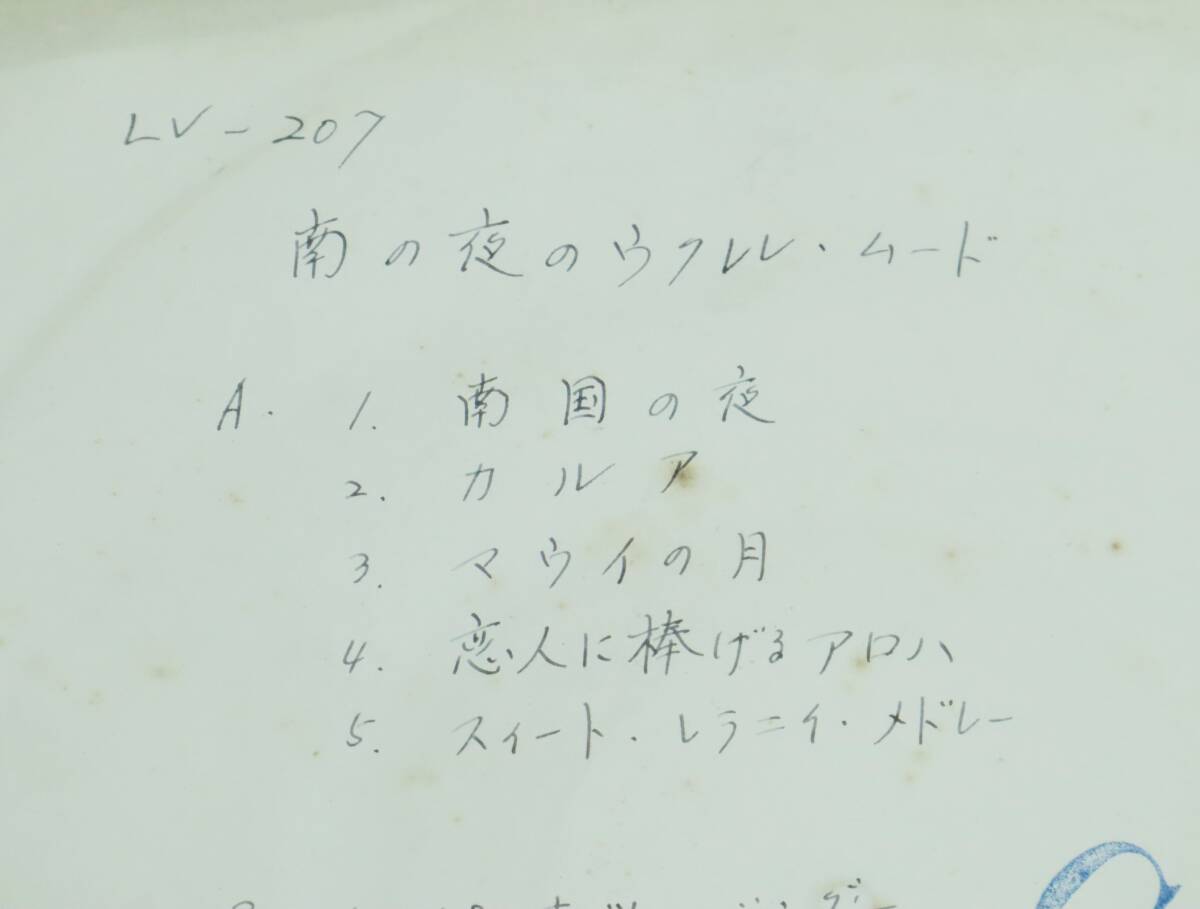 LV-207
南の夜のウクレレ・ムード
A. 1. 南国の夜
2. カルア
3. マウイの月
4. 恋人に棒げるアロハ
5. スィート・レラニイ・メドレー